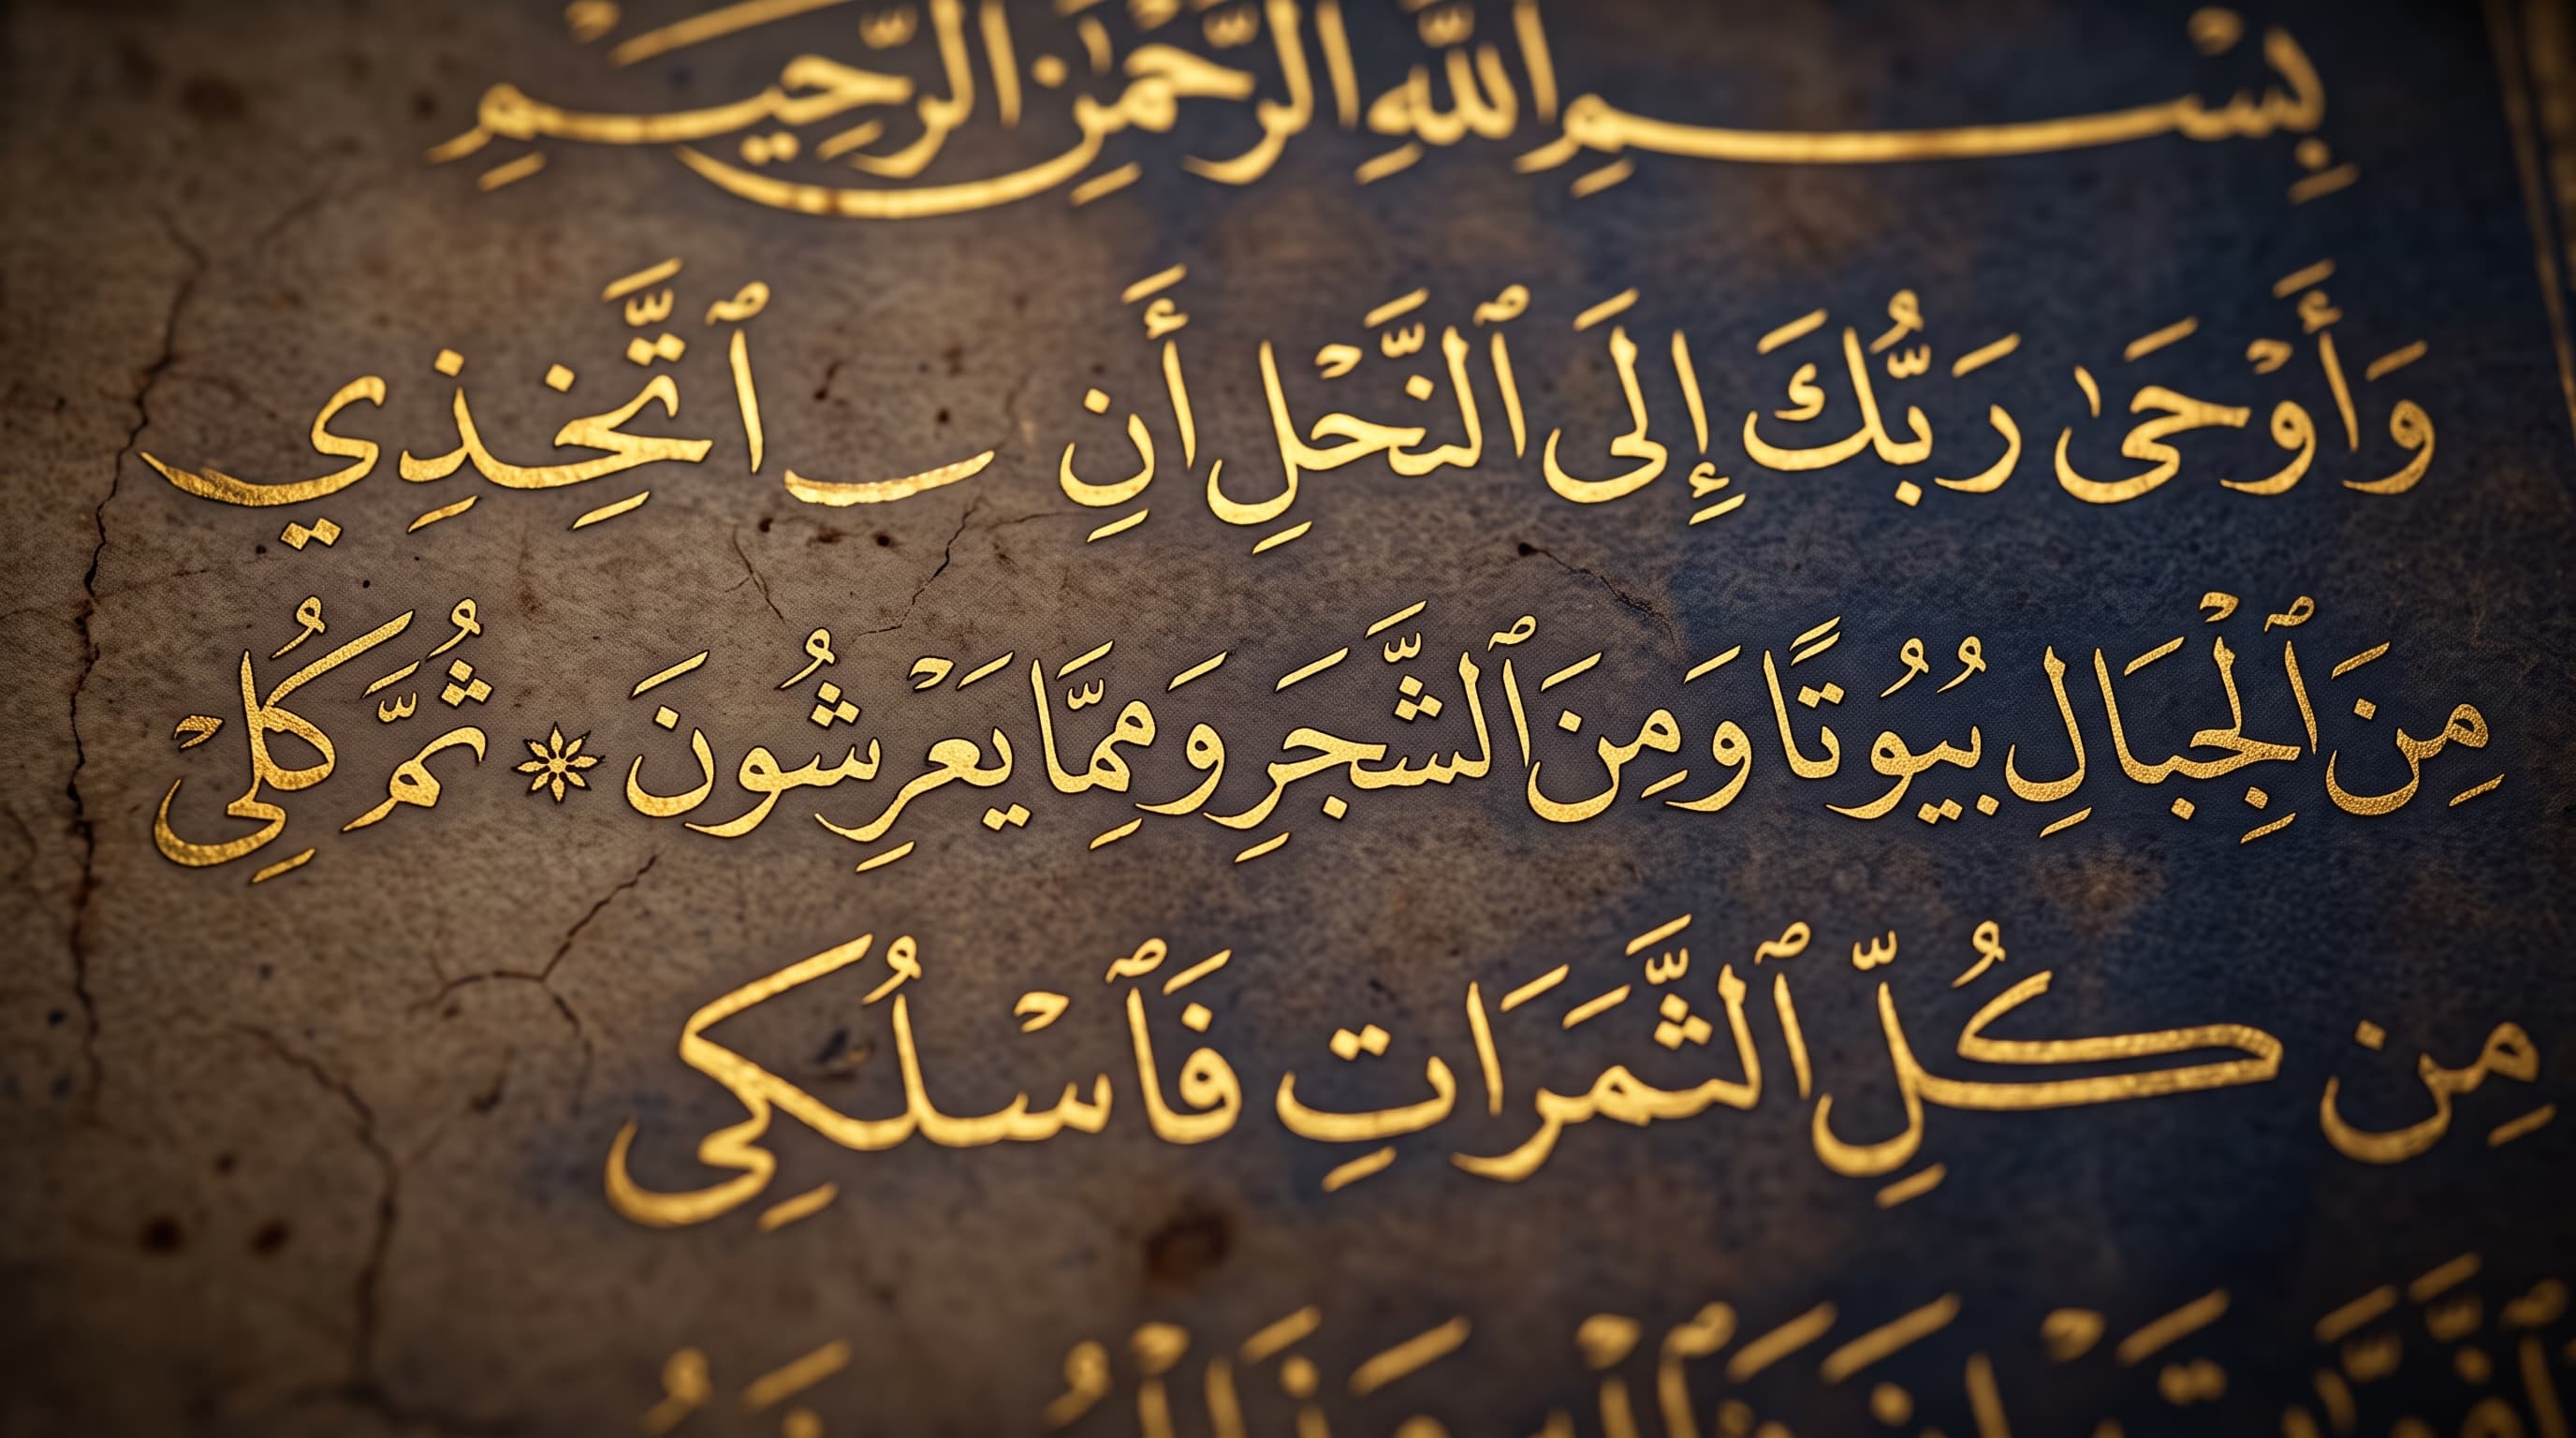 بِسْمِ اللهِ الرَّحْمٰنِ الرَّحِيمِ
وَأَوْحَىٰ رَبُّكَ إِلَى ٱلنَّحْلِ أَنِ ٱتَّخِذِي
مِنَ ٱلْجِبَالِ بُيُوتًا وَمِنَ ٱلشَّجَرِ وَمِمَّا يَعْرِشُونَ ۞ ثُمَّ كُلِيْ
مِن كُلِّ ٱلثَّمَرَاتِ فَٱسْلُكِى